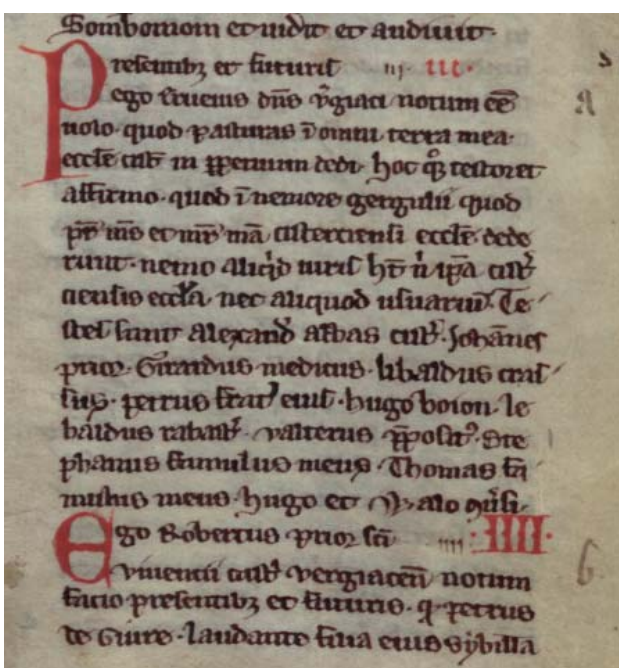 Somborniom et uidit et audiuit·
Presentibꝫ et futuris iij· III·
ego herueius dn̄s v̄giaci notum eē
uolo· quod pasturas ī omni terra mea·
eccłe cist̄ in ꝑpetuum dedi· hoc qͦꝫ testor et
affirmo· quod ī nemore gergulii quod
pr̄ ms̄ et mr̄ mā cisterciensi eccłe dede
runt· nemo aliqͥd iuris ht̄ ñ ipā cist̄
ciensis eccl̄a· nec aliquod usuariū· Te
stes sunt alexand̄ abbas cist̄· Johānes
prior· Girardus medicus· libaldus cras
sus· petrus frat̄ eius· hugo boion· le
baldus rabast̄· valterus p̄posit᷒· Ste
phanus famulus meus· Thomas fa
mulus meus· hugo et Walo
Ego Robertus prior sc̄i iiii· IIII·
viuentii cist̄ vergiacen̄ notum
facio presentibꝫ et futuris· q̄ petrus
de Giure· laudante filia eius sybilla